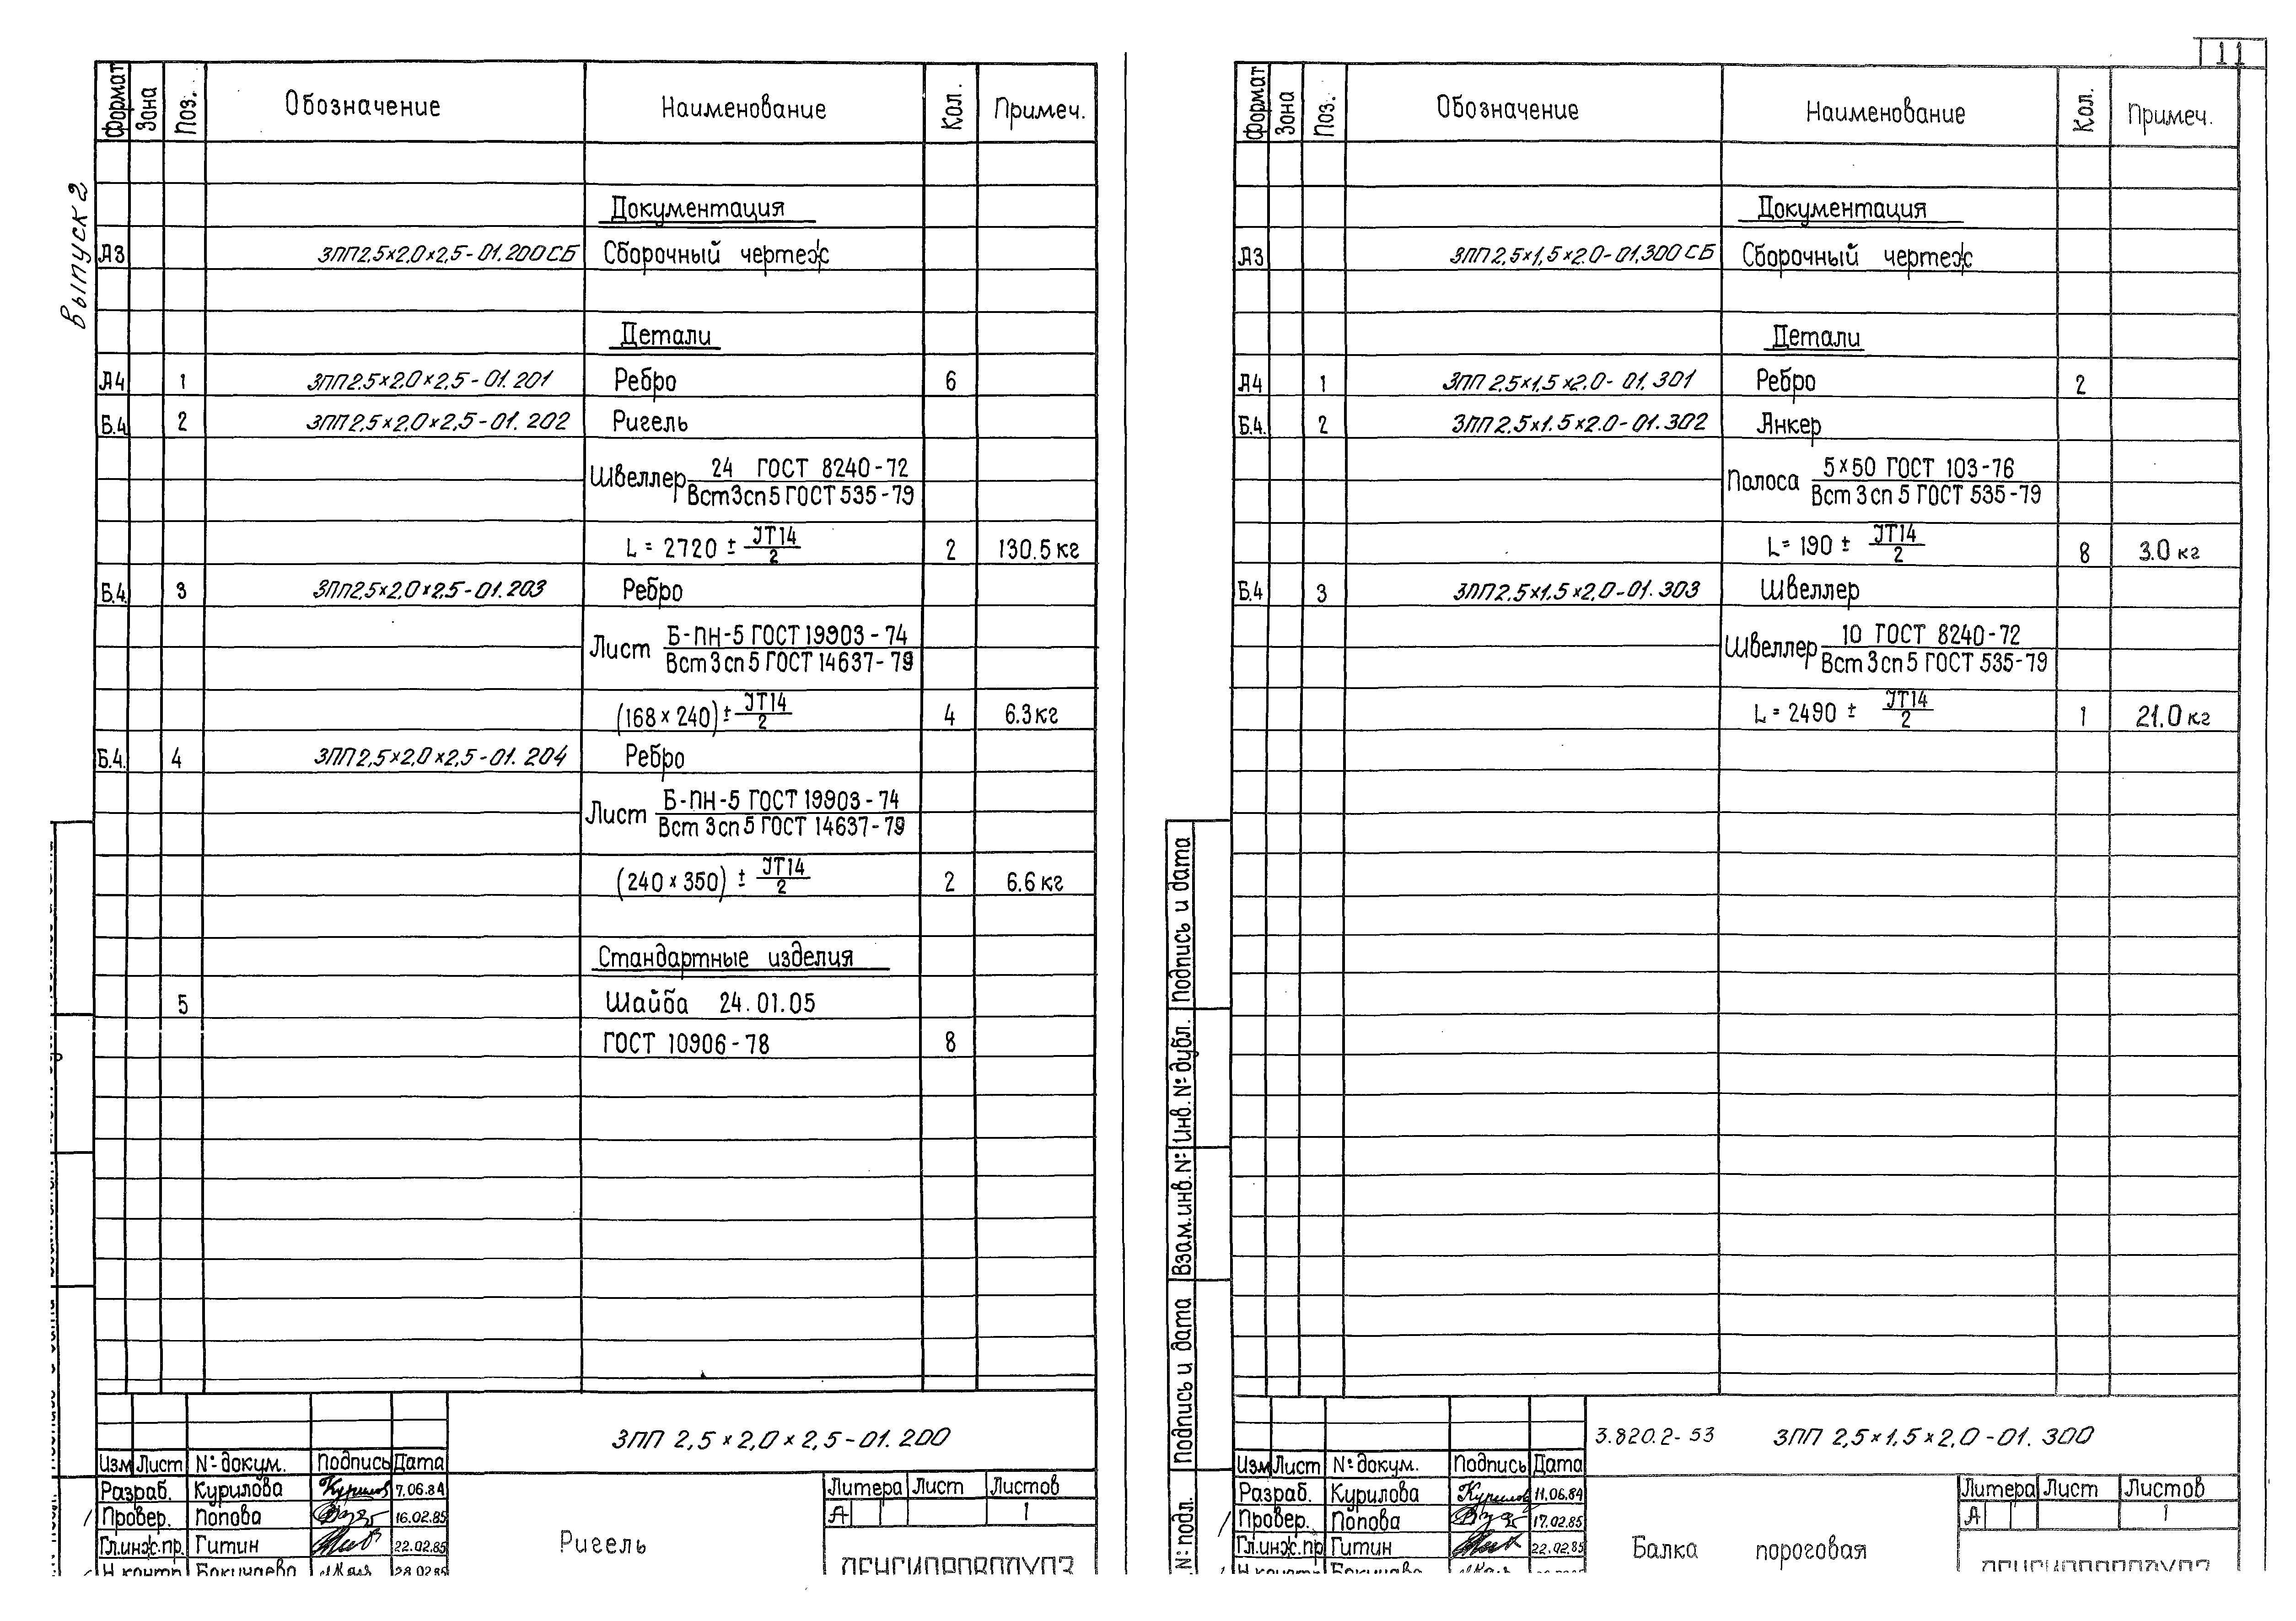 11
Выпуск 2
Формат Зона Поз. Обозначение Наименование Кол. Примеч.
Документация
А3 ЗПП2,5×2,0×2,5-01.200СБ Сборочный чертеж
Детали
А4 1 ЗПП2,5×2,0×2,5-01.201 Ребро 6
Б.4. 2 ЗПП2,5×2,0×2,5-01.202 Ригель
Швеллер 24 ГОСТ 8240-72
Вст3сп5 ГОСТ 535-79
L = 2720 ± JT14/2 2 130.5 кг
Б.4. 3 ЗПП2,5×2,0×2,5-01.203 Ребро
Лист Б-ПН-5 ГОСТ 19903-74
Вст3сп5 ГОСТ 14637-79
(168×240) ± JT14/2 4 6.3 кг
Б.4. 4 ЗПП2,5×2,0×2,5-01.204 Ребро
Лист Б-ПН-5 ГОСТ 19903-74
Вст3сп5 ГОСТ 14637-79
(240×350) ± JT14/2 2 6.6 кг
Стандартные изделия
5 Шайба 24.01.05
ГОСТ 10906-78 8
ЗПП 2,5×2,0×2,5-01.200
Изм Лист № докум. Подпись Дата
Разраб. Курилова 7.06.84 Литера Лист Листов
Провер. Попова 16.02.85 А 1
Гл.инж.пр. Гитин 22.02.85 Ригель
Н.контр. 28.02.85
Формат Зона Поз. Обозначение Наименование Кол. Примеч.
Документация
А3 ЗПП2,5×1,5×2.0-01.300СБ Сборочный чертеж
Детали
А4 1 ЗПП 2,5×1,5×2.0-01.301 Ребро 2
Б.4. 2 ЗПП2.5×1.5×2.0-01.302 Анкер
Полоса 5×50 ГОСТ 103-76
Вст3сп5 ГОСТ 535-79
L = 190 ± JT14/2 8 3.0 кг
Б.4 3 ЗПП2.5×1.5×2,0-01.303 Швеллер
Швеллер 10 ГОСТ 8240-72
Вст3сп5 ГОСТ 535-79
L = 2490 ± JT14/2 1 21.0 кг
Подпись и дата
Инв. № дубл.
Взам.инв. №
Подпись и дата
№ подл.
3.820.2-53 ЗПП 2,5×1,5×2,0-01.300
Изм Лист № докум. Подпись Дата
Разраб. Курилова 11.06.84 Литера Лист Листов
Провер. Попова 17.02.85 А 1
Гл.инж.пр Гитин 22.02.85 Балка пороговая